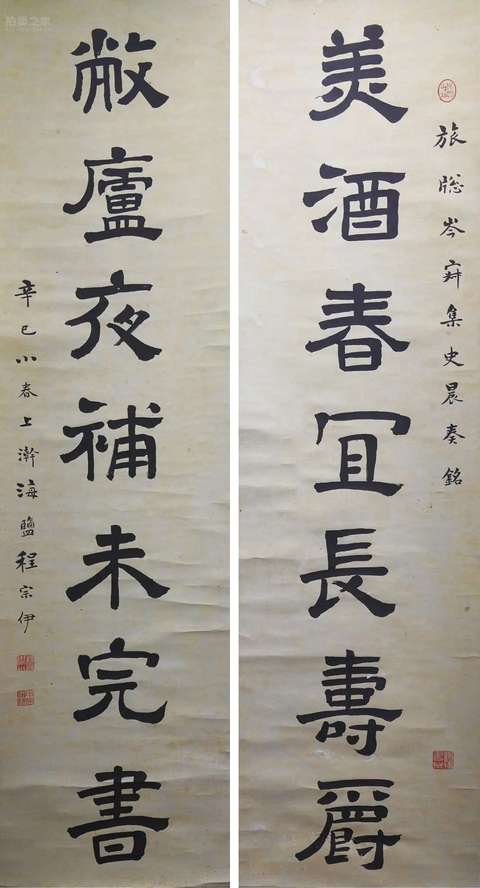 旅牎岑寂集史晨奏銘
美酒春冝長壽爵
敝廬夜補未完書
辛巳小春上澣海鹽程宗伊